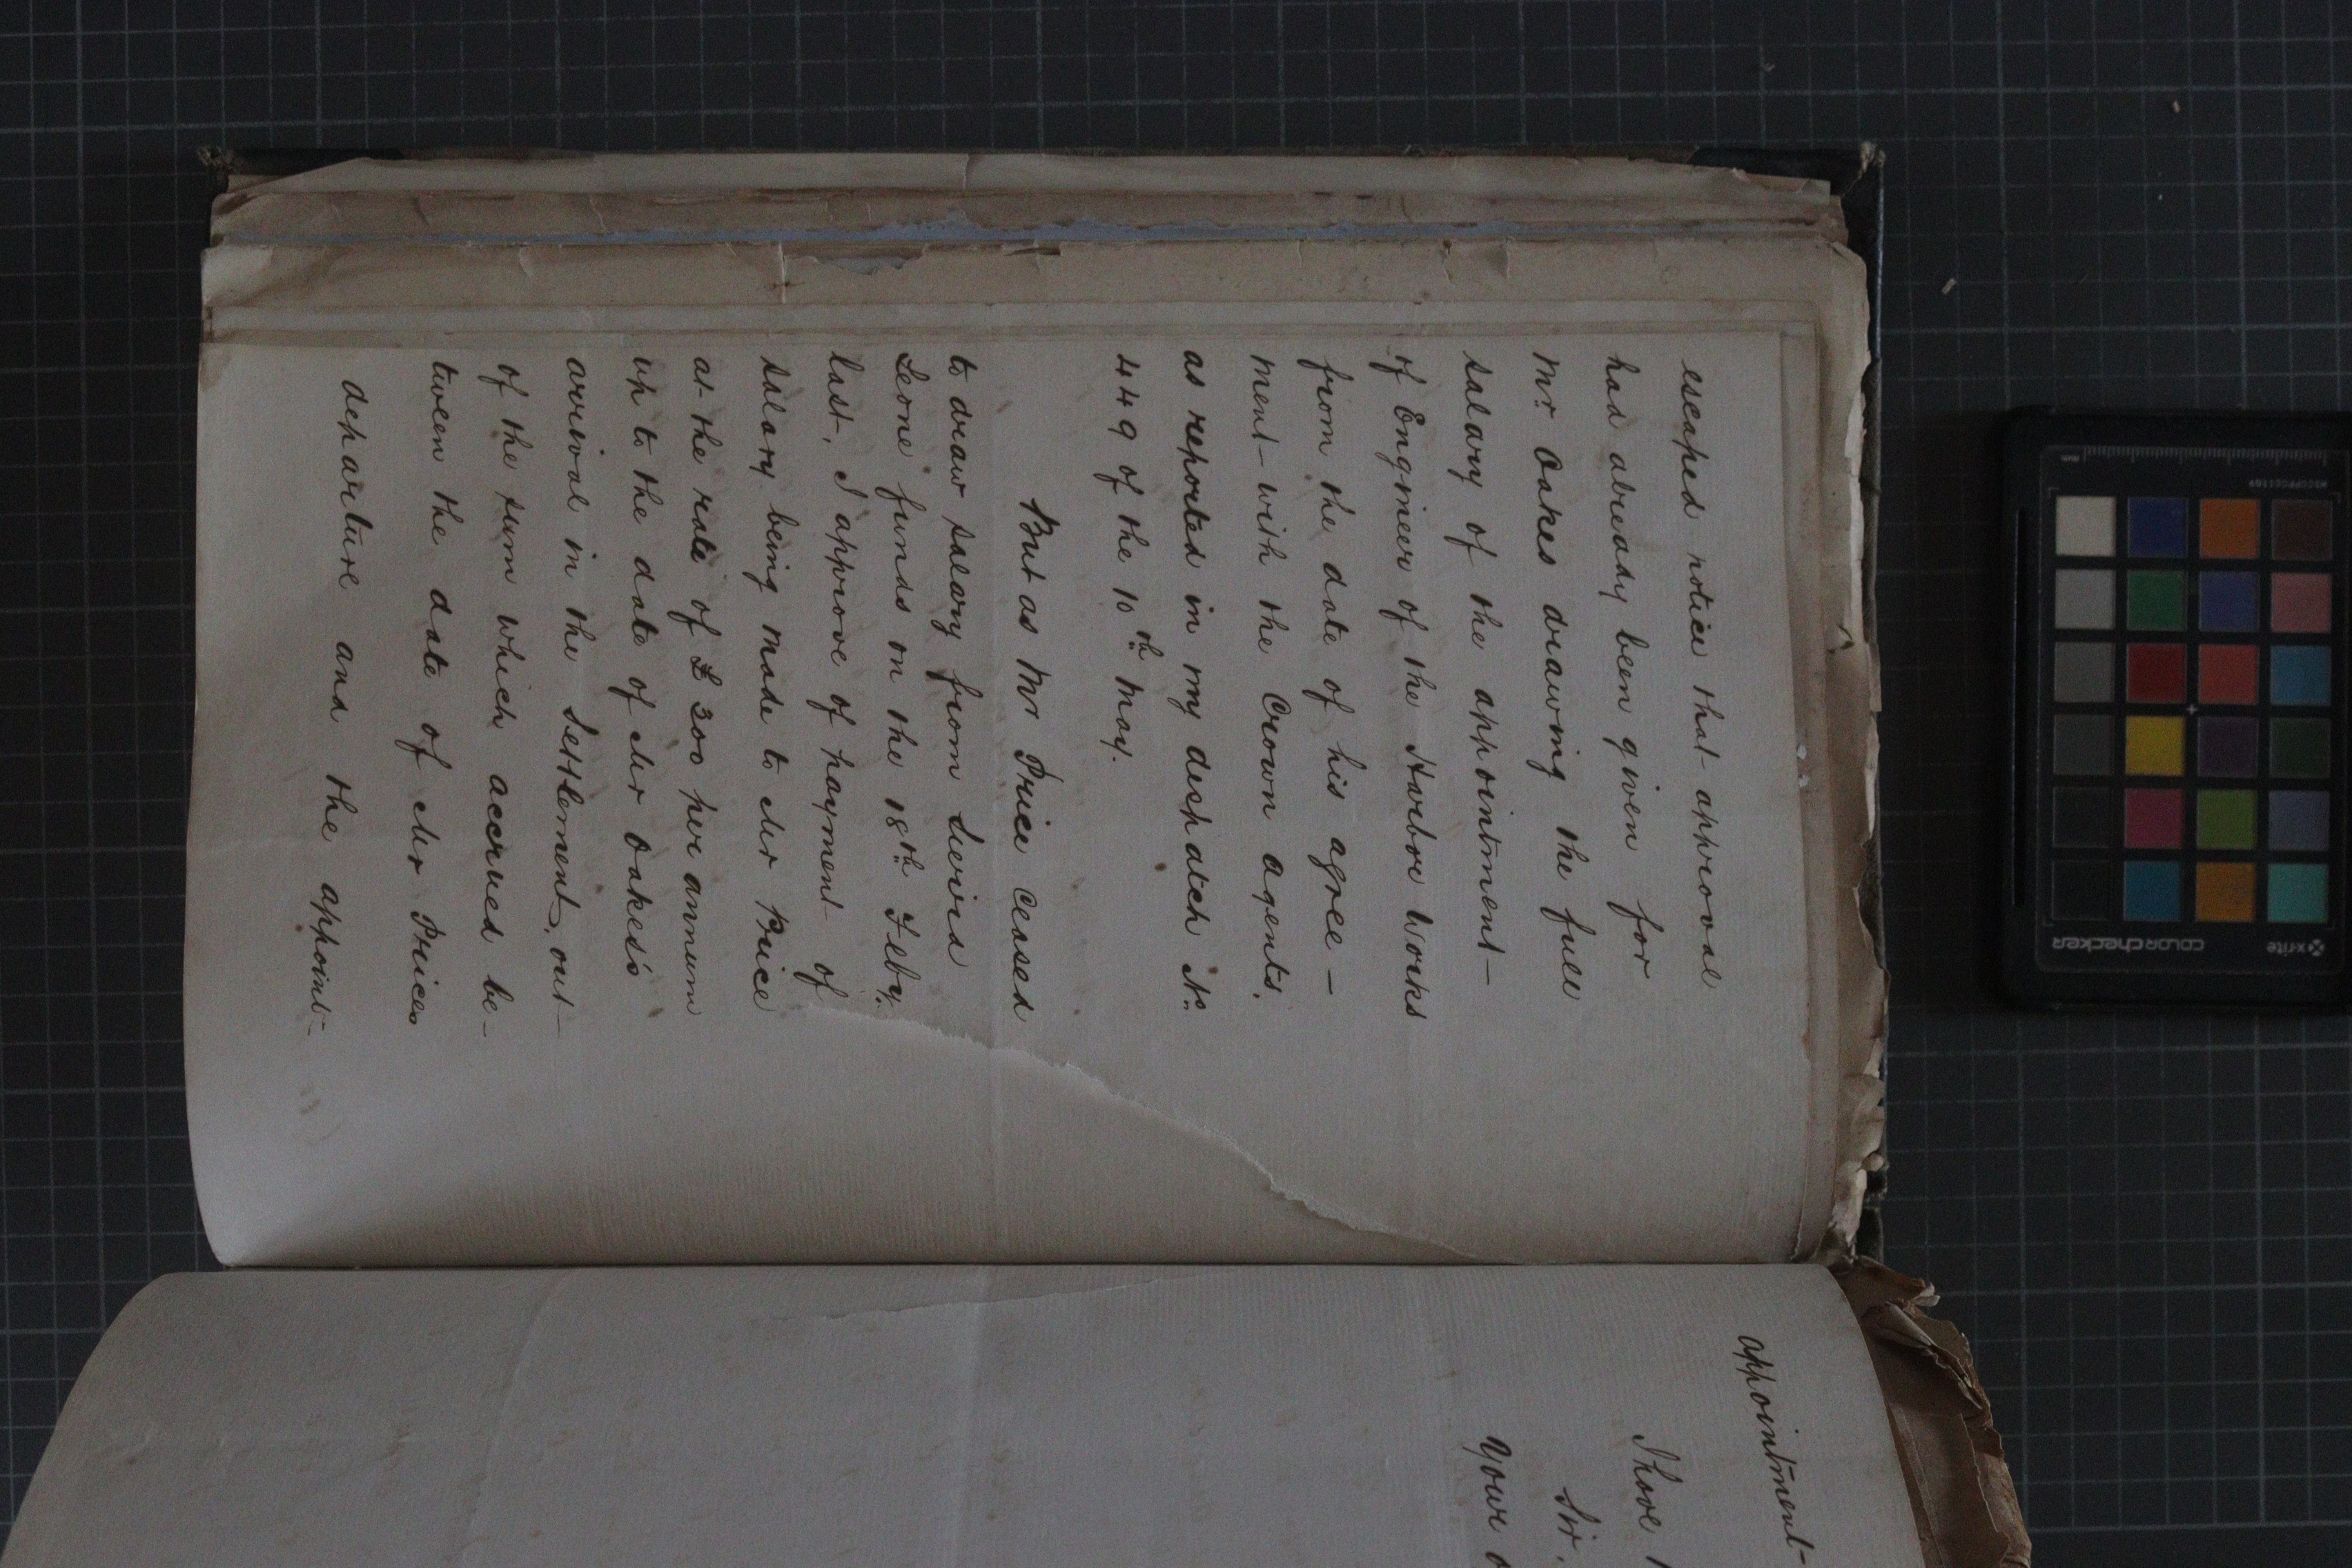 escaped notice that approval
has already been given for
Mr. Oakes drawing the full
salary of the appointment
of Engineer of the Harbor Works
from the date of his agree-
ment with the Crown agents.
as reported in my despatch No.
449 of the 10th May.
But as Mr Price ceased
to draw salary from Sierra
Leone funds on the 18th Feby.
last, I approve of payment of
salary being made to Mr Price
at the rate of £300 per annum
up to the date of Mr Oakes's
arrival in the Settlement, out
of the sum which accrued be-
tween the date of Mr Prices
departure and the appoint-
appointment
I have
Sir,
Your
x-rite
colorchecker
MSCCPPCC1109
mm